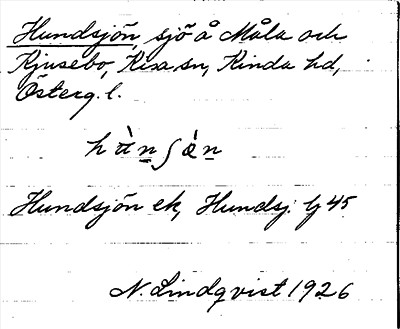 Hundsjön, sjö å Måla och
Kjusebo, Kisa sn, Kinda hd,
Österg. l.
Hundsjön ek, Hundsj. lj 45
N. Lindqvist 1926